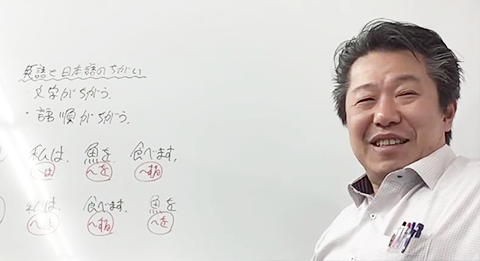 英語と日本語のちがい
文字がちがう。
・語順がちがう。
私は、魚を食べます。
〜は 〜を 〜する
私は、食べます。魚を
〜は 〜する 〜を